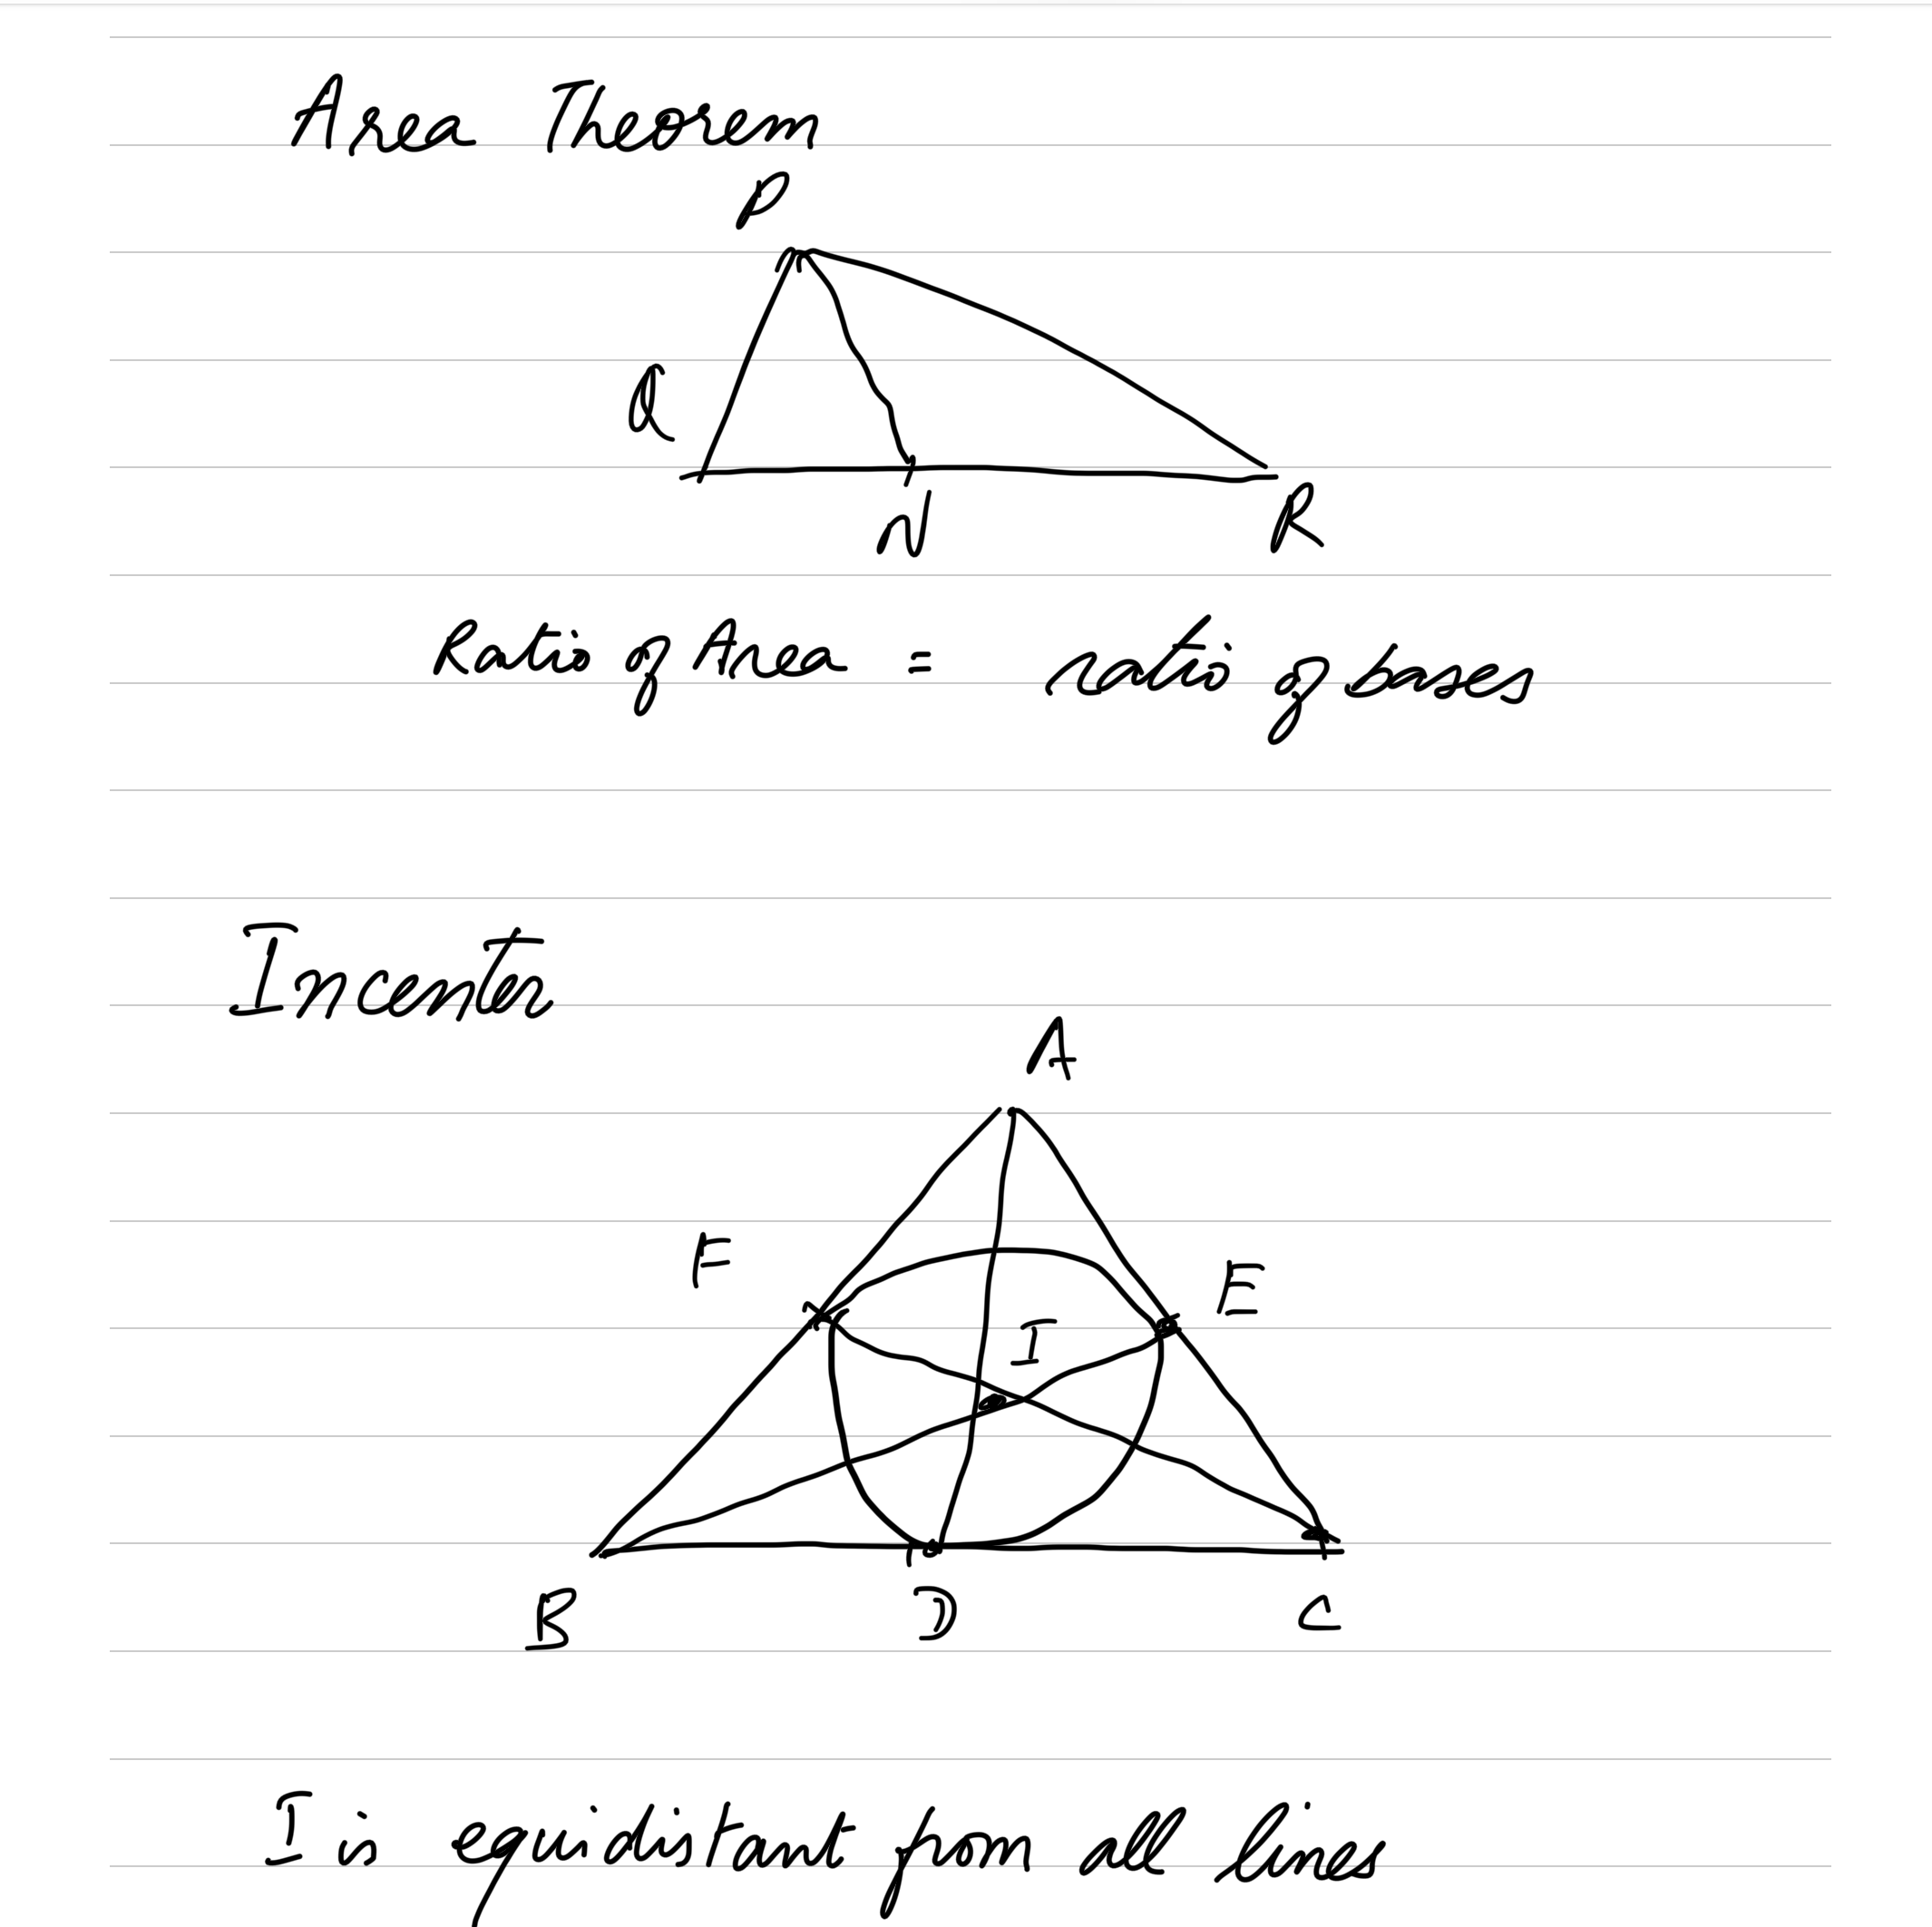 Area Theorem
P
Q
N
R
Ratio of Area = ratio of bases
Incenter
A
F
E
I
B
D
C
I is equidistant from all lines